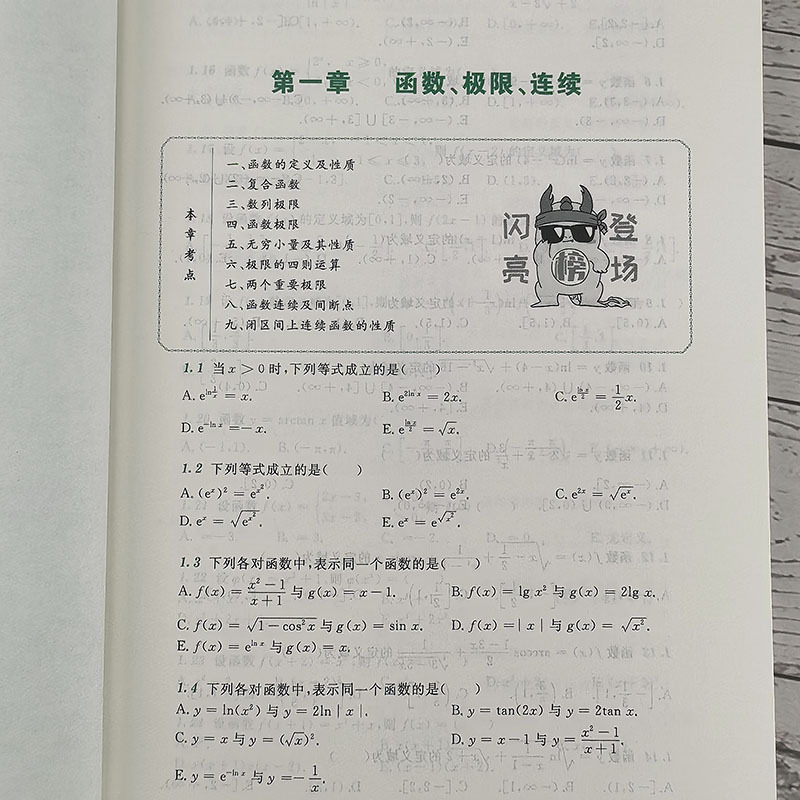 第一章 函数、极限、连续
本章考点
一、函数的定义及性质
二、复合函数
三、数列极限
四、函数极限
五、无穷小量及其性质
六、极限的四则运算
七、两个重要极限
八、函数连续及间断点
九、闭区间上连续函数的性质
闪亮
榜
登场
1.1 当 x > 0 时,下列等式成立的是( )
A. e^{ln 1/x} = x. B. e^{2ln x} = 2x. C. e^{ln x/2} = 1/2 x.
D. e^{-ln x} = -x. E. e^{ln x/2} = √x.
1.2 下列等式成立的是( )
A. (e^x)^2 = e^{x^2}. B. (e^x)^2 = e^{2x}. C. e^{2x} = √(e^x).
D. e^x = √(e^{x^2}). E. e^x = e^{√(x^2)}.
1.3 下列各对函数中,表示同一个函数的是( )
A. f(x) = (x^2-1)/(x+1) 与 g(x) = x-1. B. f(x) = lg x^2 与 g(x) = 2lg x.
C. f(x) = √(1-cos^2 x) 与 g(x) = sin x. D. f(x) = |x| 与 g(x) = √(x^2).
E. f(x) = e^{ln x} 与 g(x) = x.
1.4 下列各对函数中,表示同一个函数的是( )
A. y = ln(x^2) 与 y = 2ln|x|. B. y = tan(2x) 与 y = 2tan x.
C. y = x 与 y = (√x)^2. D. y = x-1 与 y = (x^2-1)/(x+1).
E. y = e^{-ln x} 与 y = -1/x.